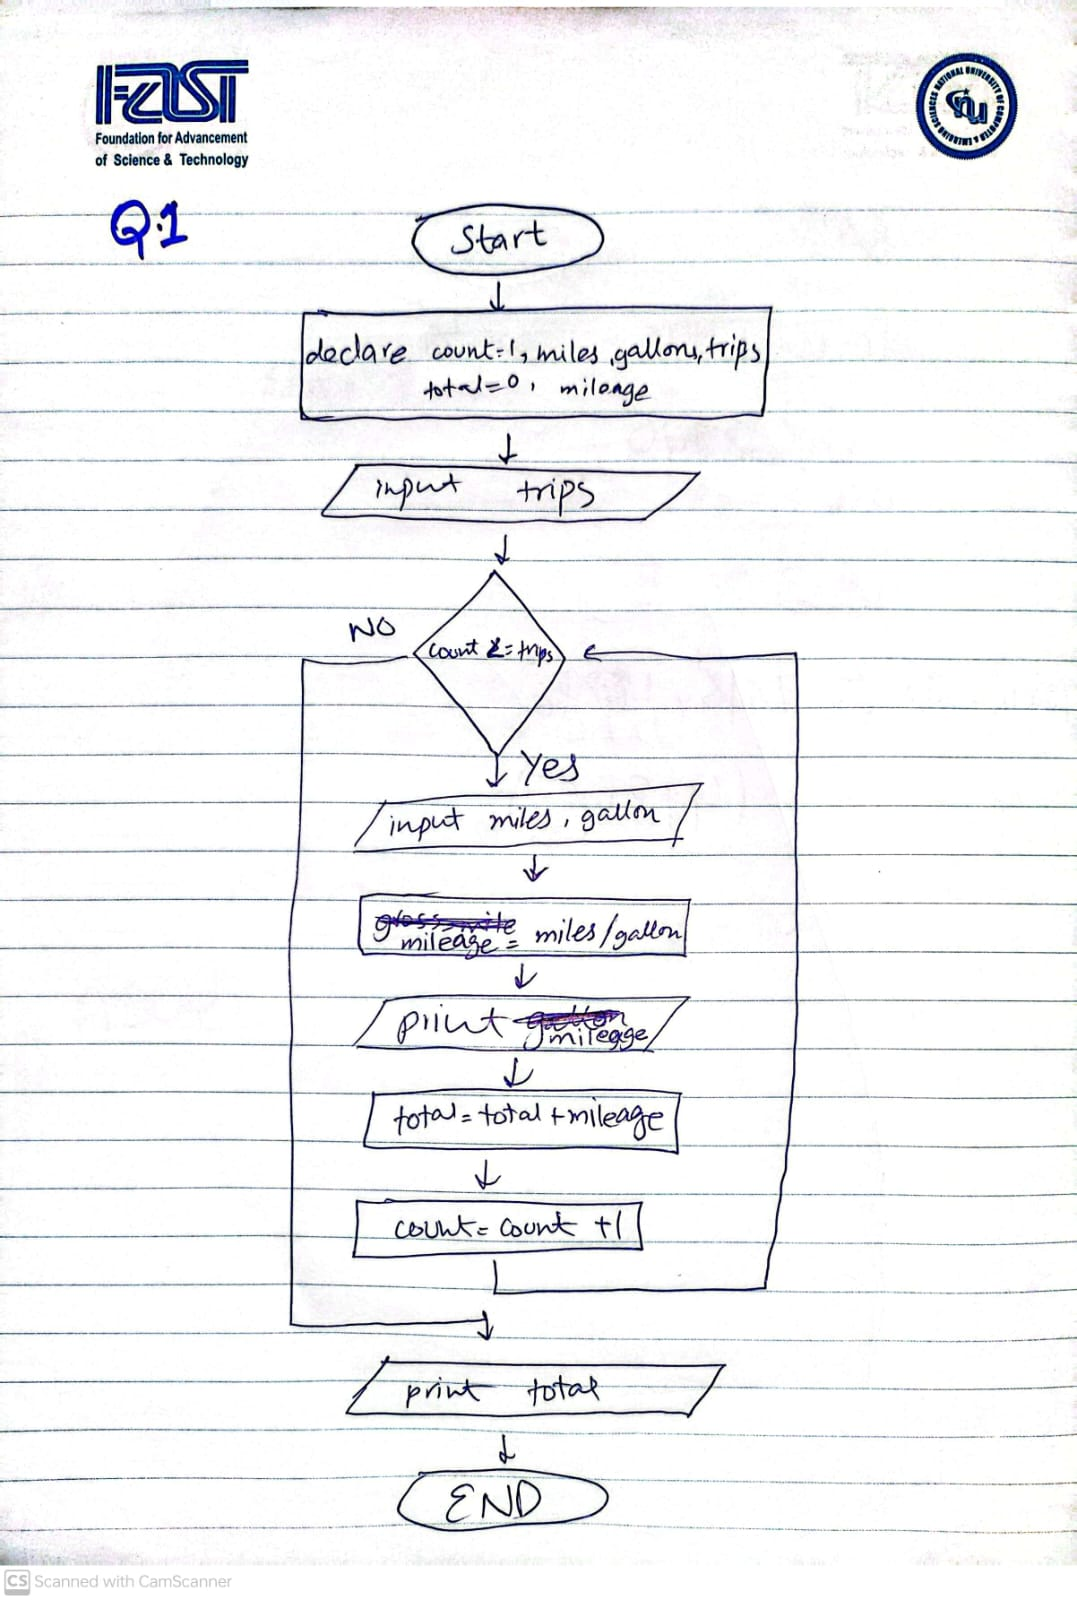 FAST
Foundation for Advancement
of Science & Technology
NATIONAL UNIVERSITY OF COMPUTER & EMERGING SCIENCES
nu
Q.1
Start
declare count=1, miles, gallons, trips
total=0, mileage
input trips
NO
count <= trips
Yes
input miles, gallon
mileage = miles/gallon
print mileage
total = total + mileage
count = count + 1
print total
END
CS Scanned with CamScanner